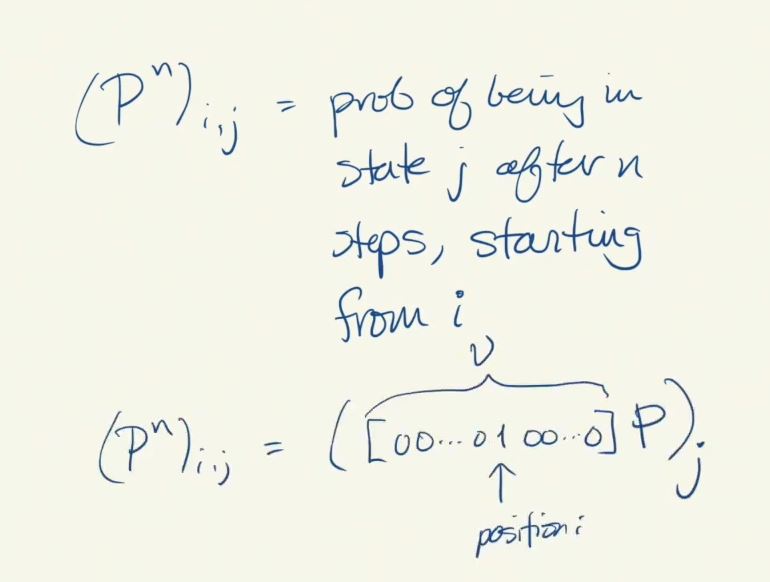 (Pⁿ)ᵢ,ⱼ = prob of being in
state j after n
steps, starting
from i
ν
(Pⁿ)ᵢ,ⱼ = ([00...01 00...0] P)ⱼ
↑
position i